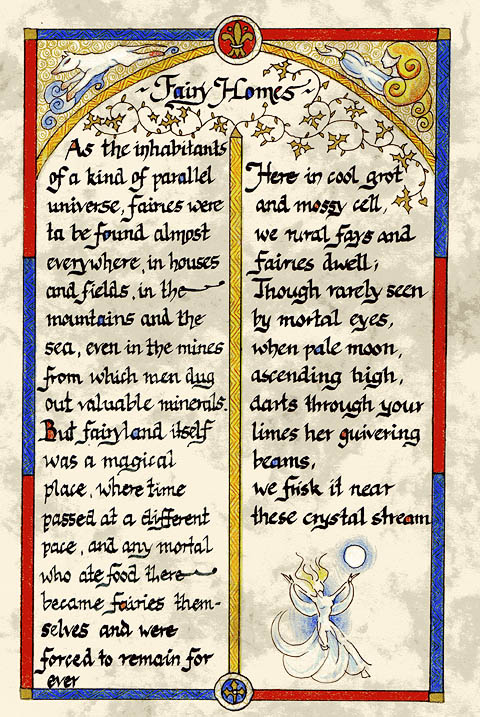 ~ Fairy Homes ~
As the inhabitants
of a kind of parallel
universe, fairies were
to be found almost
everywhere, in houses
and fields, in the
mountains and the
sea, even in the mines
from which men dug
out valuable minerals.
But fairyland itself
was a magical
place, where time
passed at a different
pace, and any mortal
who ate food there
became fairies them-
selves and were
forced to remain for
ever
Here in cool grot
and mossy cell,
we rural fays and
fairies dwell;
Though rarely seen
by mortal eyes,
when pale moon,
ascending high,
darts through your
limes her quivering
beams,
we frisk it near
these crystal stream